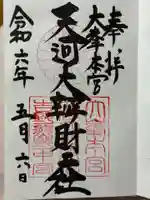 奉拝
大峯本宮
天河大辨財天社
令和六年
五月六日